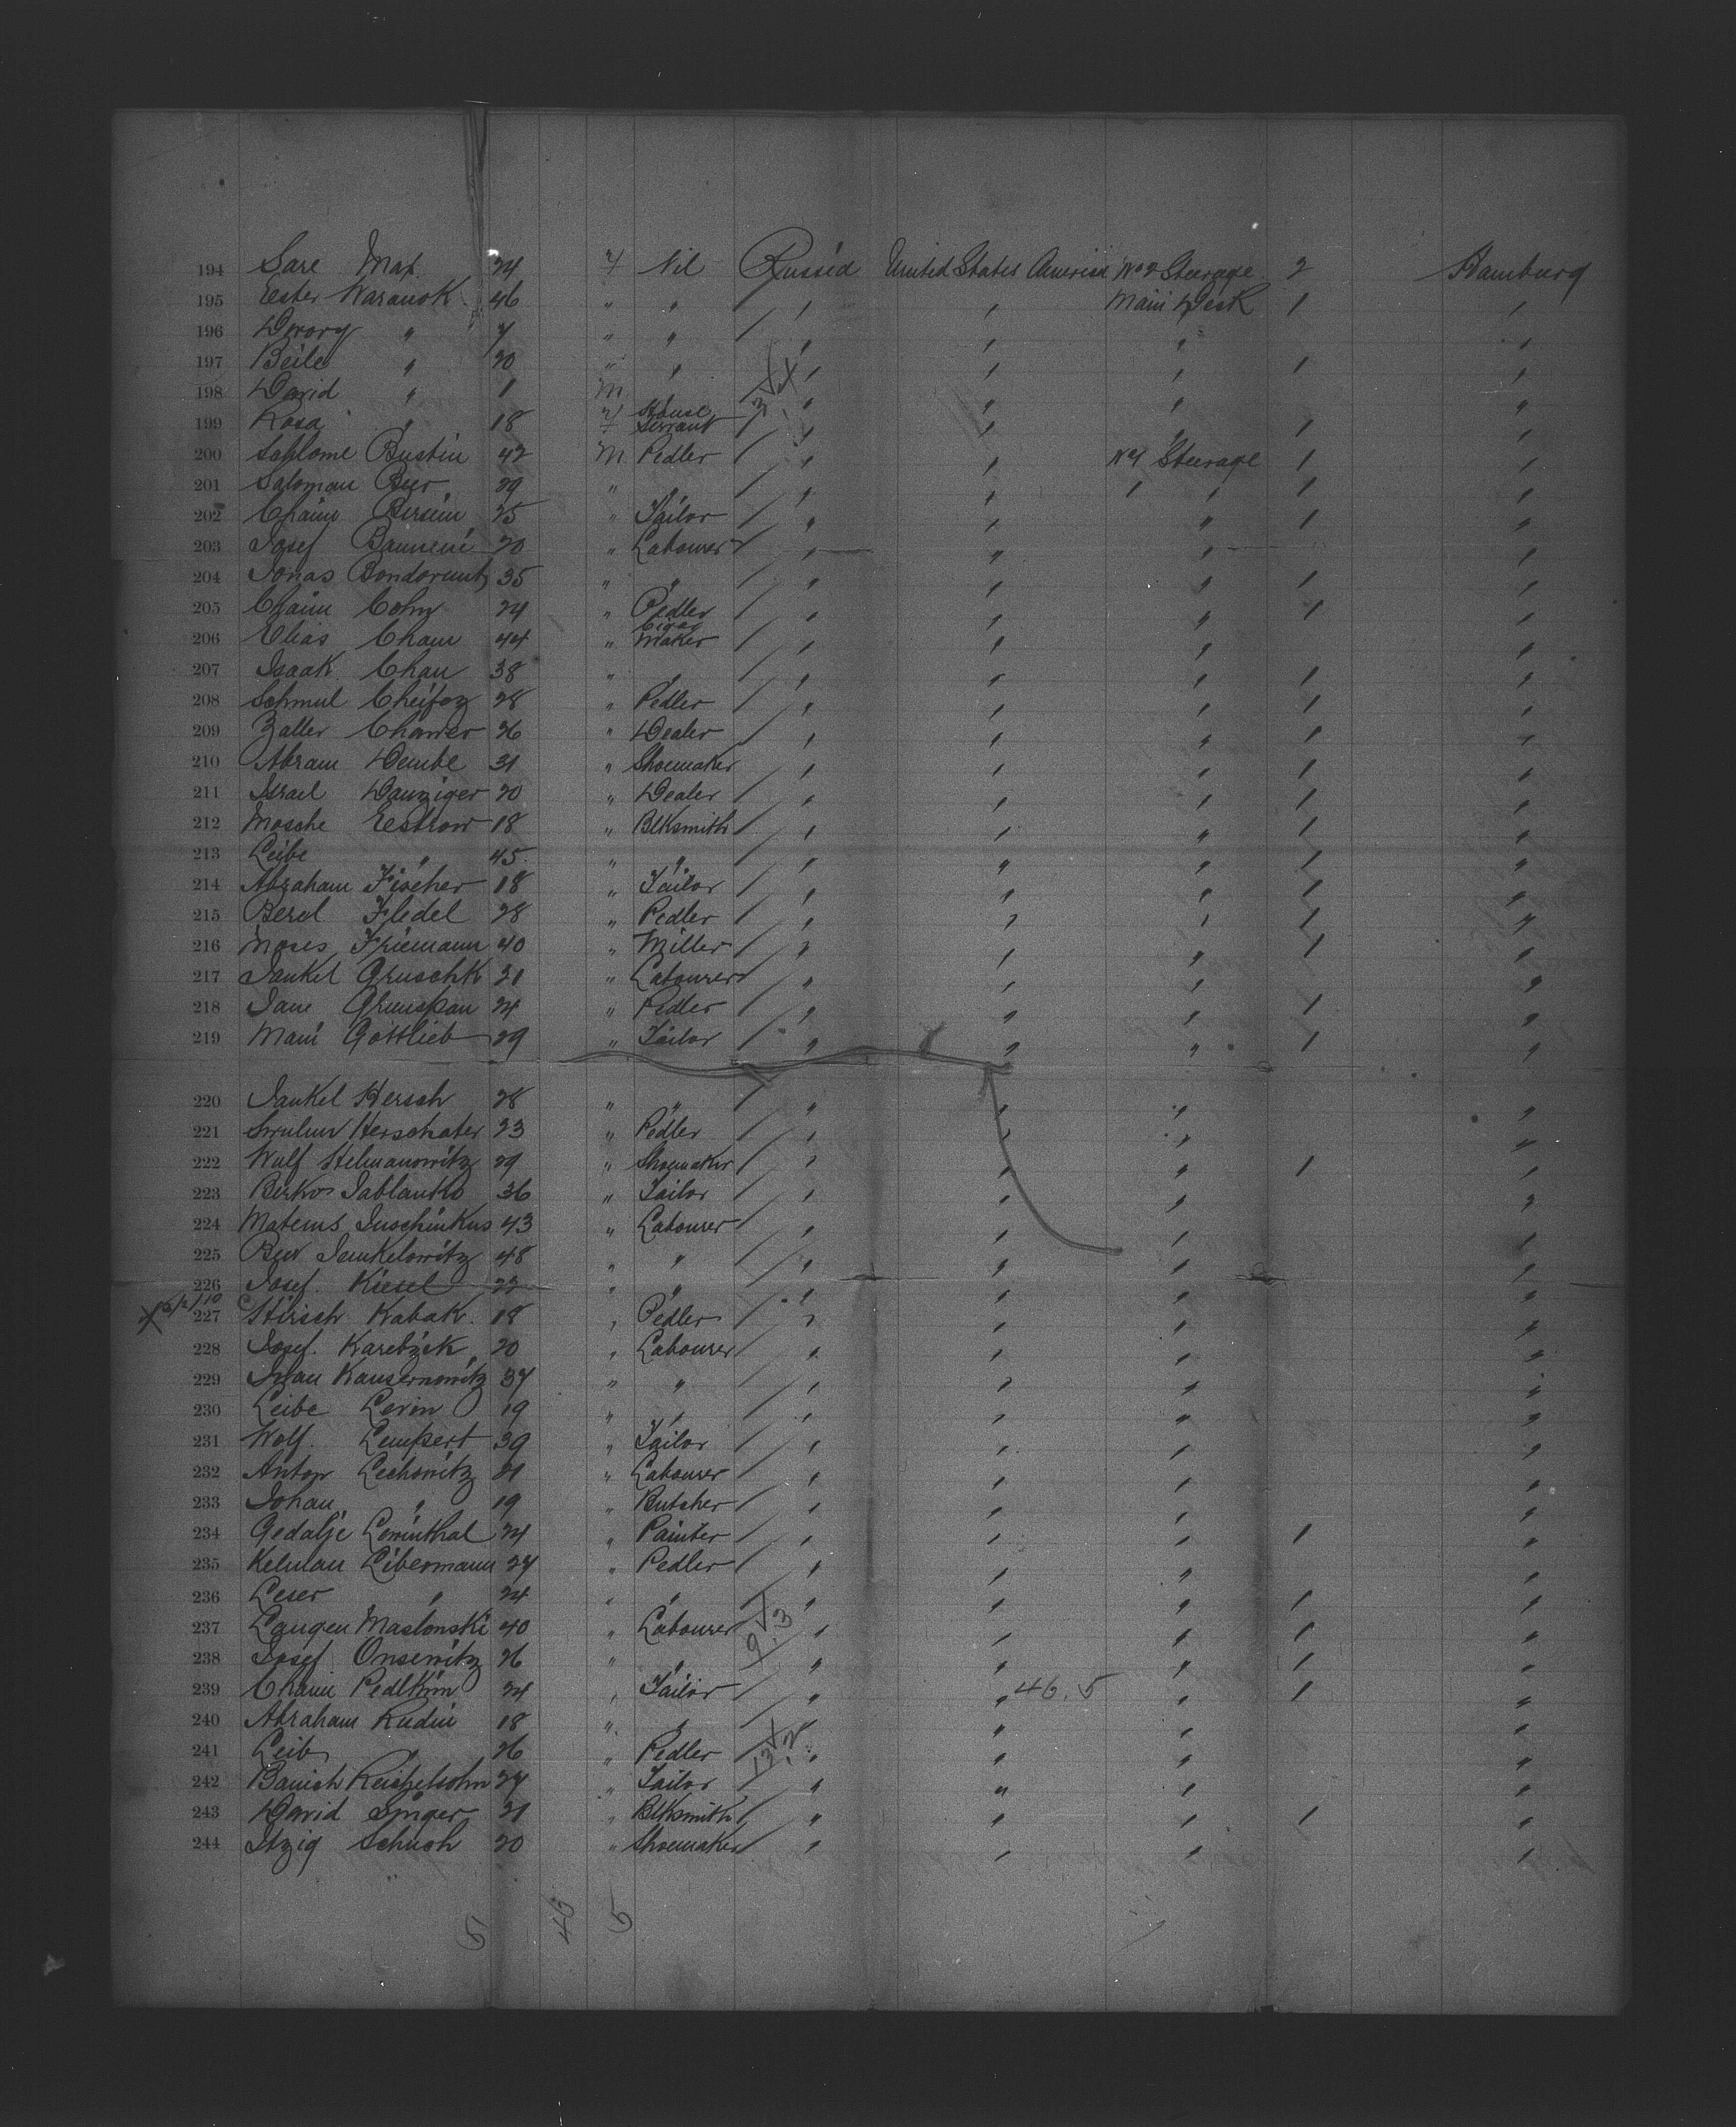 194 Sare Max 24 F Nil Russia United States America No 2 Steerage 2 Hamburg
195 Ester Waranok 46 " " " " Main Deck 1 "
196 " 7 " " " " " "
197 Beile " 20 " " " " " 1 "
198 David " 1 M " " " "
3
199 Rosa " 18 F House Servant " " " 1 "
200 Bustin 42 M Pedler " " No 1 Steerage 1 "
201 Salomon Beer 29 " " " " " " 1 "
202 Chaim Bersein 25 " Tailor " " " 1 "
203 Josef 20 " Labourer " " " "
204 Jonas 35 " " " " " 1 "
205 Chaim Cohn 24 " Pedler " " " 1 "
206 Elias Cham 44 " Cigar Maker " " " "
207 Isaak Chau 38 " " " " " 1 "
208 Schmul Cheifoz 28 " Pedler " " " 1 "
209 26 " Dealer " " " 1 "
210 Abram Dembe 31 " Shoemaker " " " 1 "
211 Israel Danziger 20 " Dealer " " " 1 "
212 Mosche Estrow 18 " Blksmith " " " 1 "
213 Leibe " 45 " " " " " 1 "
214 Abraham Fischer 18 " Tailor " " " 1 "
215 Berel Fledel 28 " Pedler " " " 1 "
216 Moses Friemann 40 " Miller " " " 1 "
217 Jankel Gruschk 21 " Labourer " " " "
218 Grunspan 24 " Pedler " " " 1 "
219 Gottlieb 29 " Tailor " " " 1 "
220 Jankel Hersch 28 " " " " " "
221 23 " Pedler " " " "
222 Wulf 29 " Shoemaker " " " 1 "
223 Berko Jablanko 36 " Tailor " " " "
224 43 " Labourer " " " "
225 Jankelowitz 48 " " " " " "
226 Josef Kiesel 22 " " " " " "
227 Hirsch Kabak 18 " Pedler " " " "
228 Josef 20 " Labourer " " " "
229 37 " " " " " "
230 Leibe Levin 19 " " " " " "
231 Wolf Lempert 39 " Tailor " " " "
232 Anton Lechowitz 21 " Labourer " " " "
233 Johan " 19 " Butcher " " " "
234 Gedalje Lewinthal 24 " Painter " " " 1 "
235 Kelman Libermann 27 " Pedler " " " "
236 Leser " 24 " " " " " 1 "
237 Maslonski 40 " Labourer " " " 1 "
9 3
238 Josef Onsewitz 26 " " " " " 1 "
239 Chaim 24 " Tailor " " 46.5 " 1 "
240 Abraham Rudin 18 " " " " " "
241 Leib " 26 " Pedler " " " "
242 27 " Tailor " " " "
243 David Singer 21 " Blksmith " " " 1 "
244 Itzig Schuch 20 " Shoemaker " " " "
51 46 5